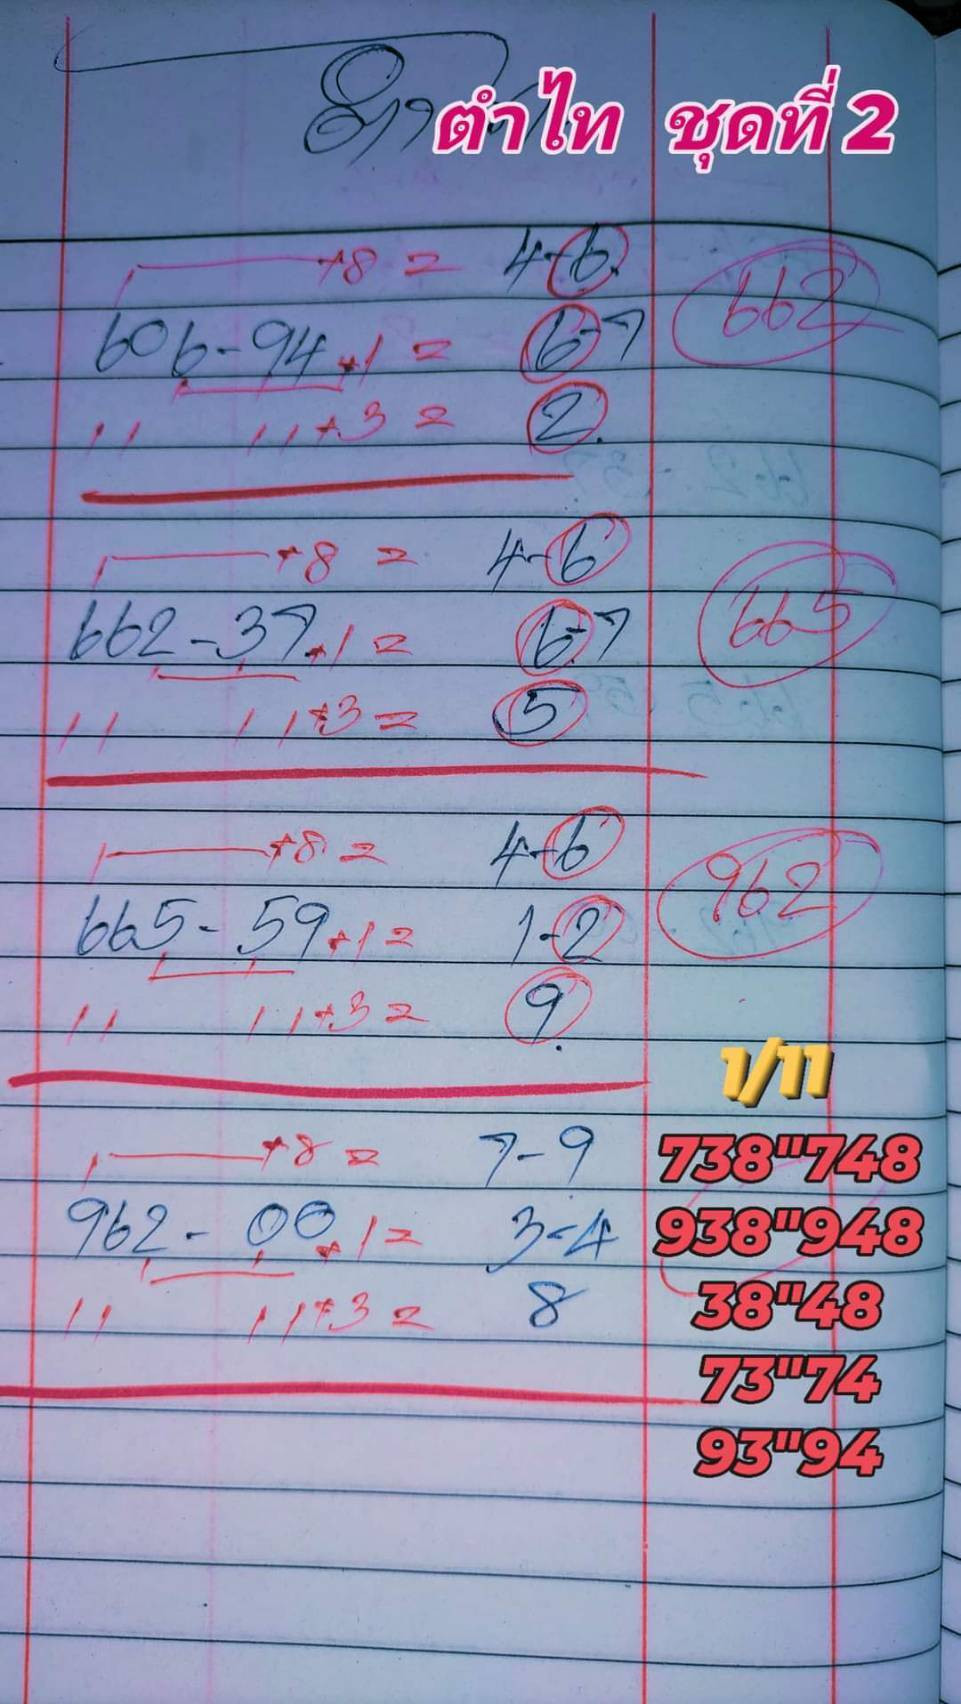 ตำไท ชุดที่ 2
+8 = 4-6
662
606-94+1 = 6-7
11 11+3 = 2
+8 = 4-6
665
662-37+1 = 6-7
11 11+3 = 5
+8 = 4-6
962
665-59+1 = 1-2
11 11+3 = 9
1/11
+8 = 7-9
738"748
962-00+1 = 3-4
938"948
11 11+3 = 8
38"48
73"74
93"94